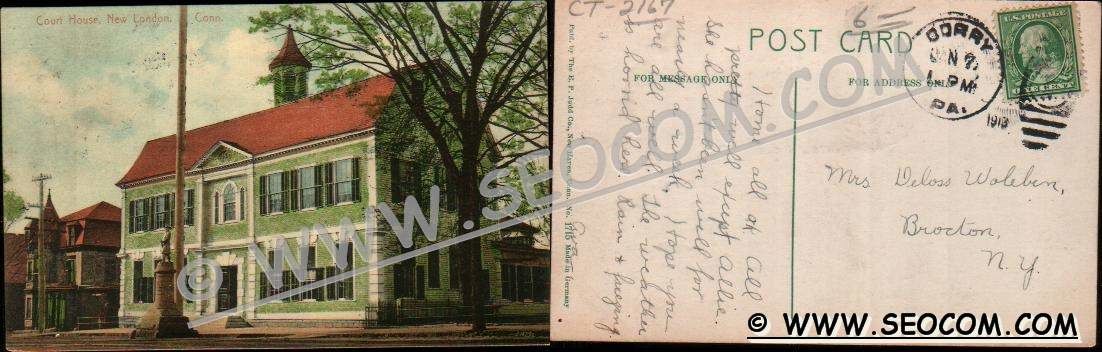 Court House, New London, Conn.
© WWW.SEOCOM.COM
CT-2167
Publ. by The E. P. Judd Co., New Haven, Conn. No. 1715 Made in Germany
POST CARD
FOR MESSAGE ONLY
FOR ADDRESS ONLY
6
CORRY
JAN 7
1 PM
PA.
1913
U.S. POSTAGE
ONE CENT
Mrs Deloss Woleben,
Brocton,
N.Y.
Hom all of
well except Allie.
will for
many a week, I hope
are all well. The weather
is horrid here. Rain & freezing
© WWW.SEOCOM.COM